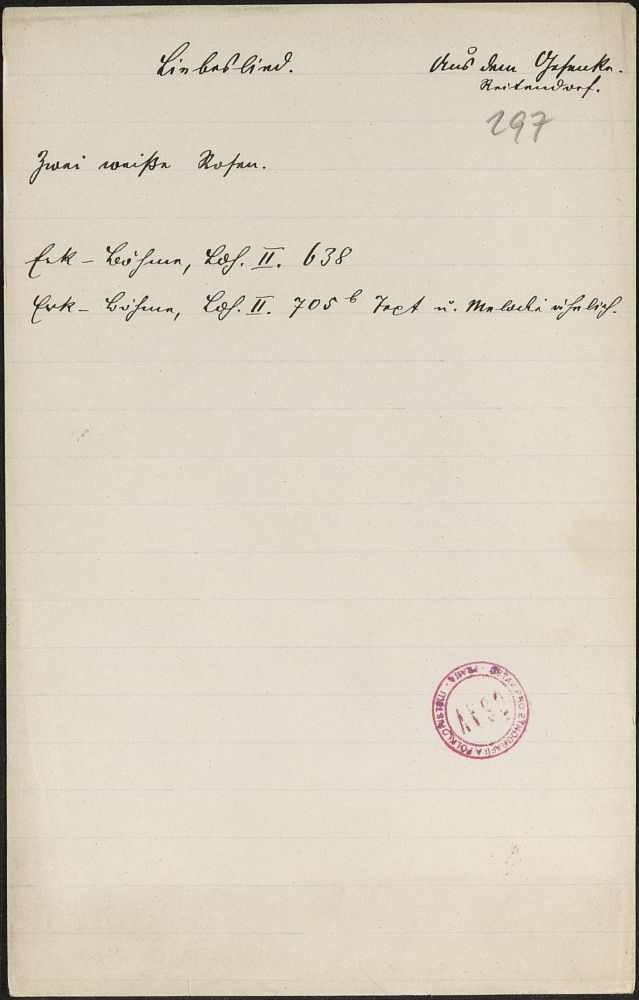 Liebeslied.
Aus dem Gesenke.
Reitendorf.
297
Zwei weiße Rosen.
Erk - Böhme, Lh. II. 638
Erk - Böhme, Lh. II. 705 b Text u. Melodie ähnlich.
ÚSTAV PRO ETNOGRAFII A FOLKLORISTIKU · PRAHA ·